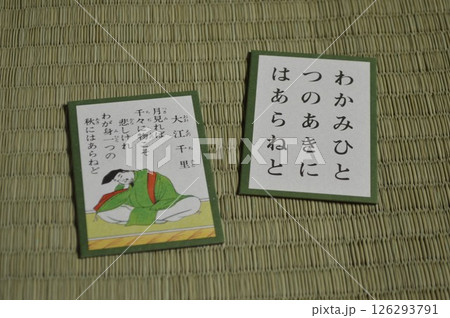 大江千里
月見れば
千々に物こそ
悲しけれ
わが身一つの
秋にはあらねど
わかみひと
つのあきに
はあらねと
126293791